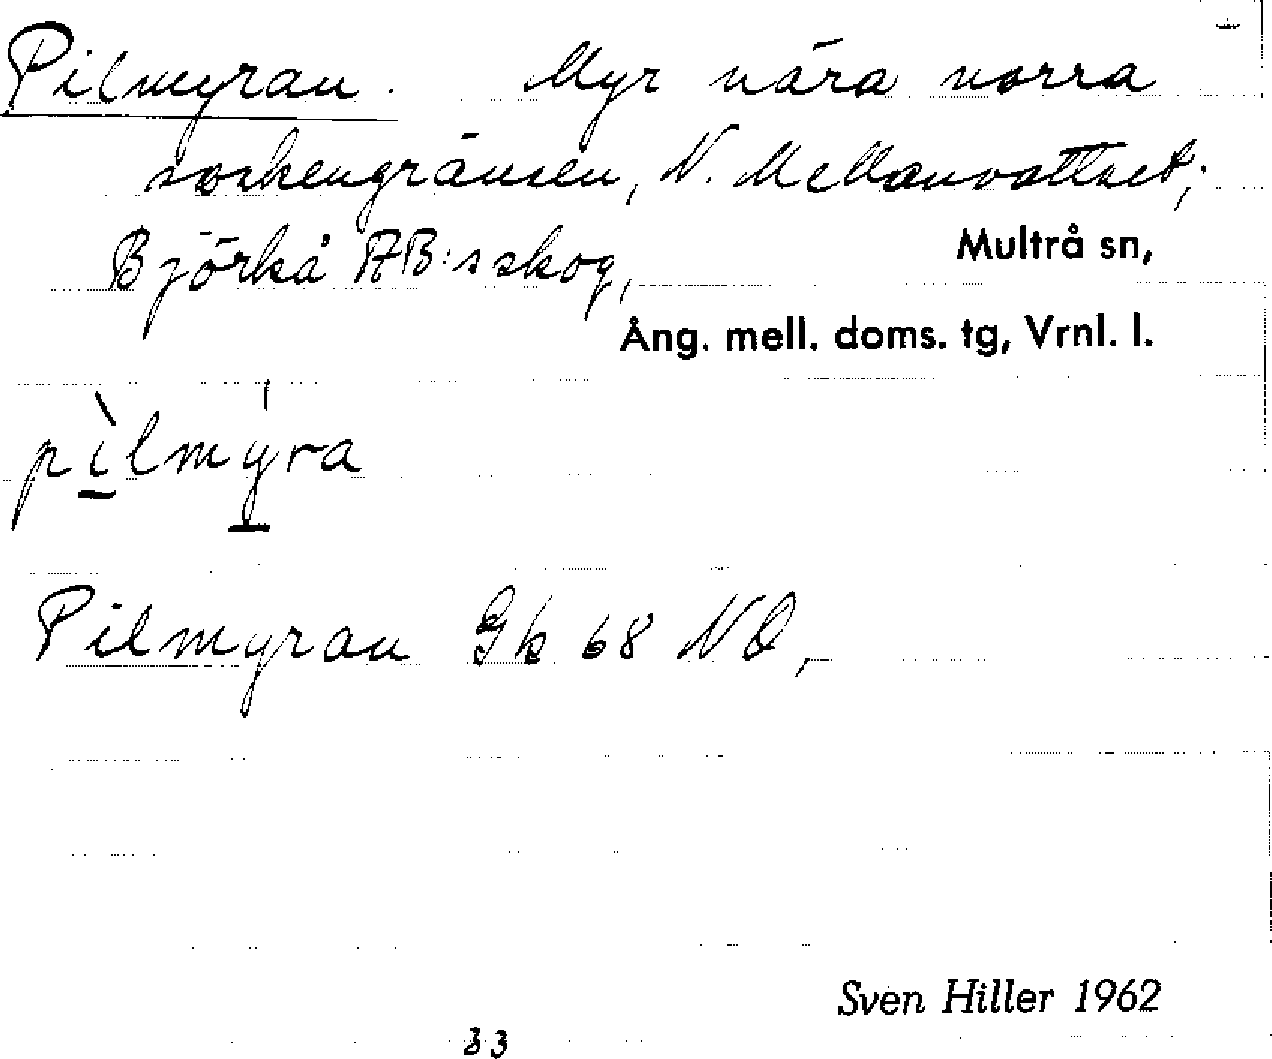 Pilmyran. Myr nära norra
sockengränsen, N. Mellanvattnet;
Björkå AB:s skog, Multrå sn,
Ång. mell. doms. tg, Vrnl. l.
pìlmýra
Pilmyran Gk 68 NO,
Sven Hiller 1962
33